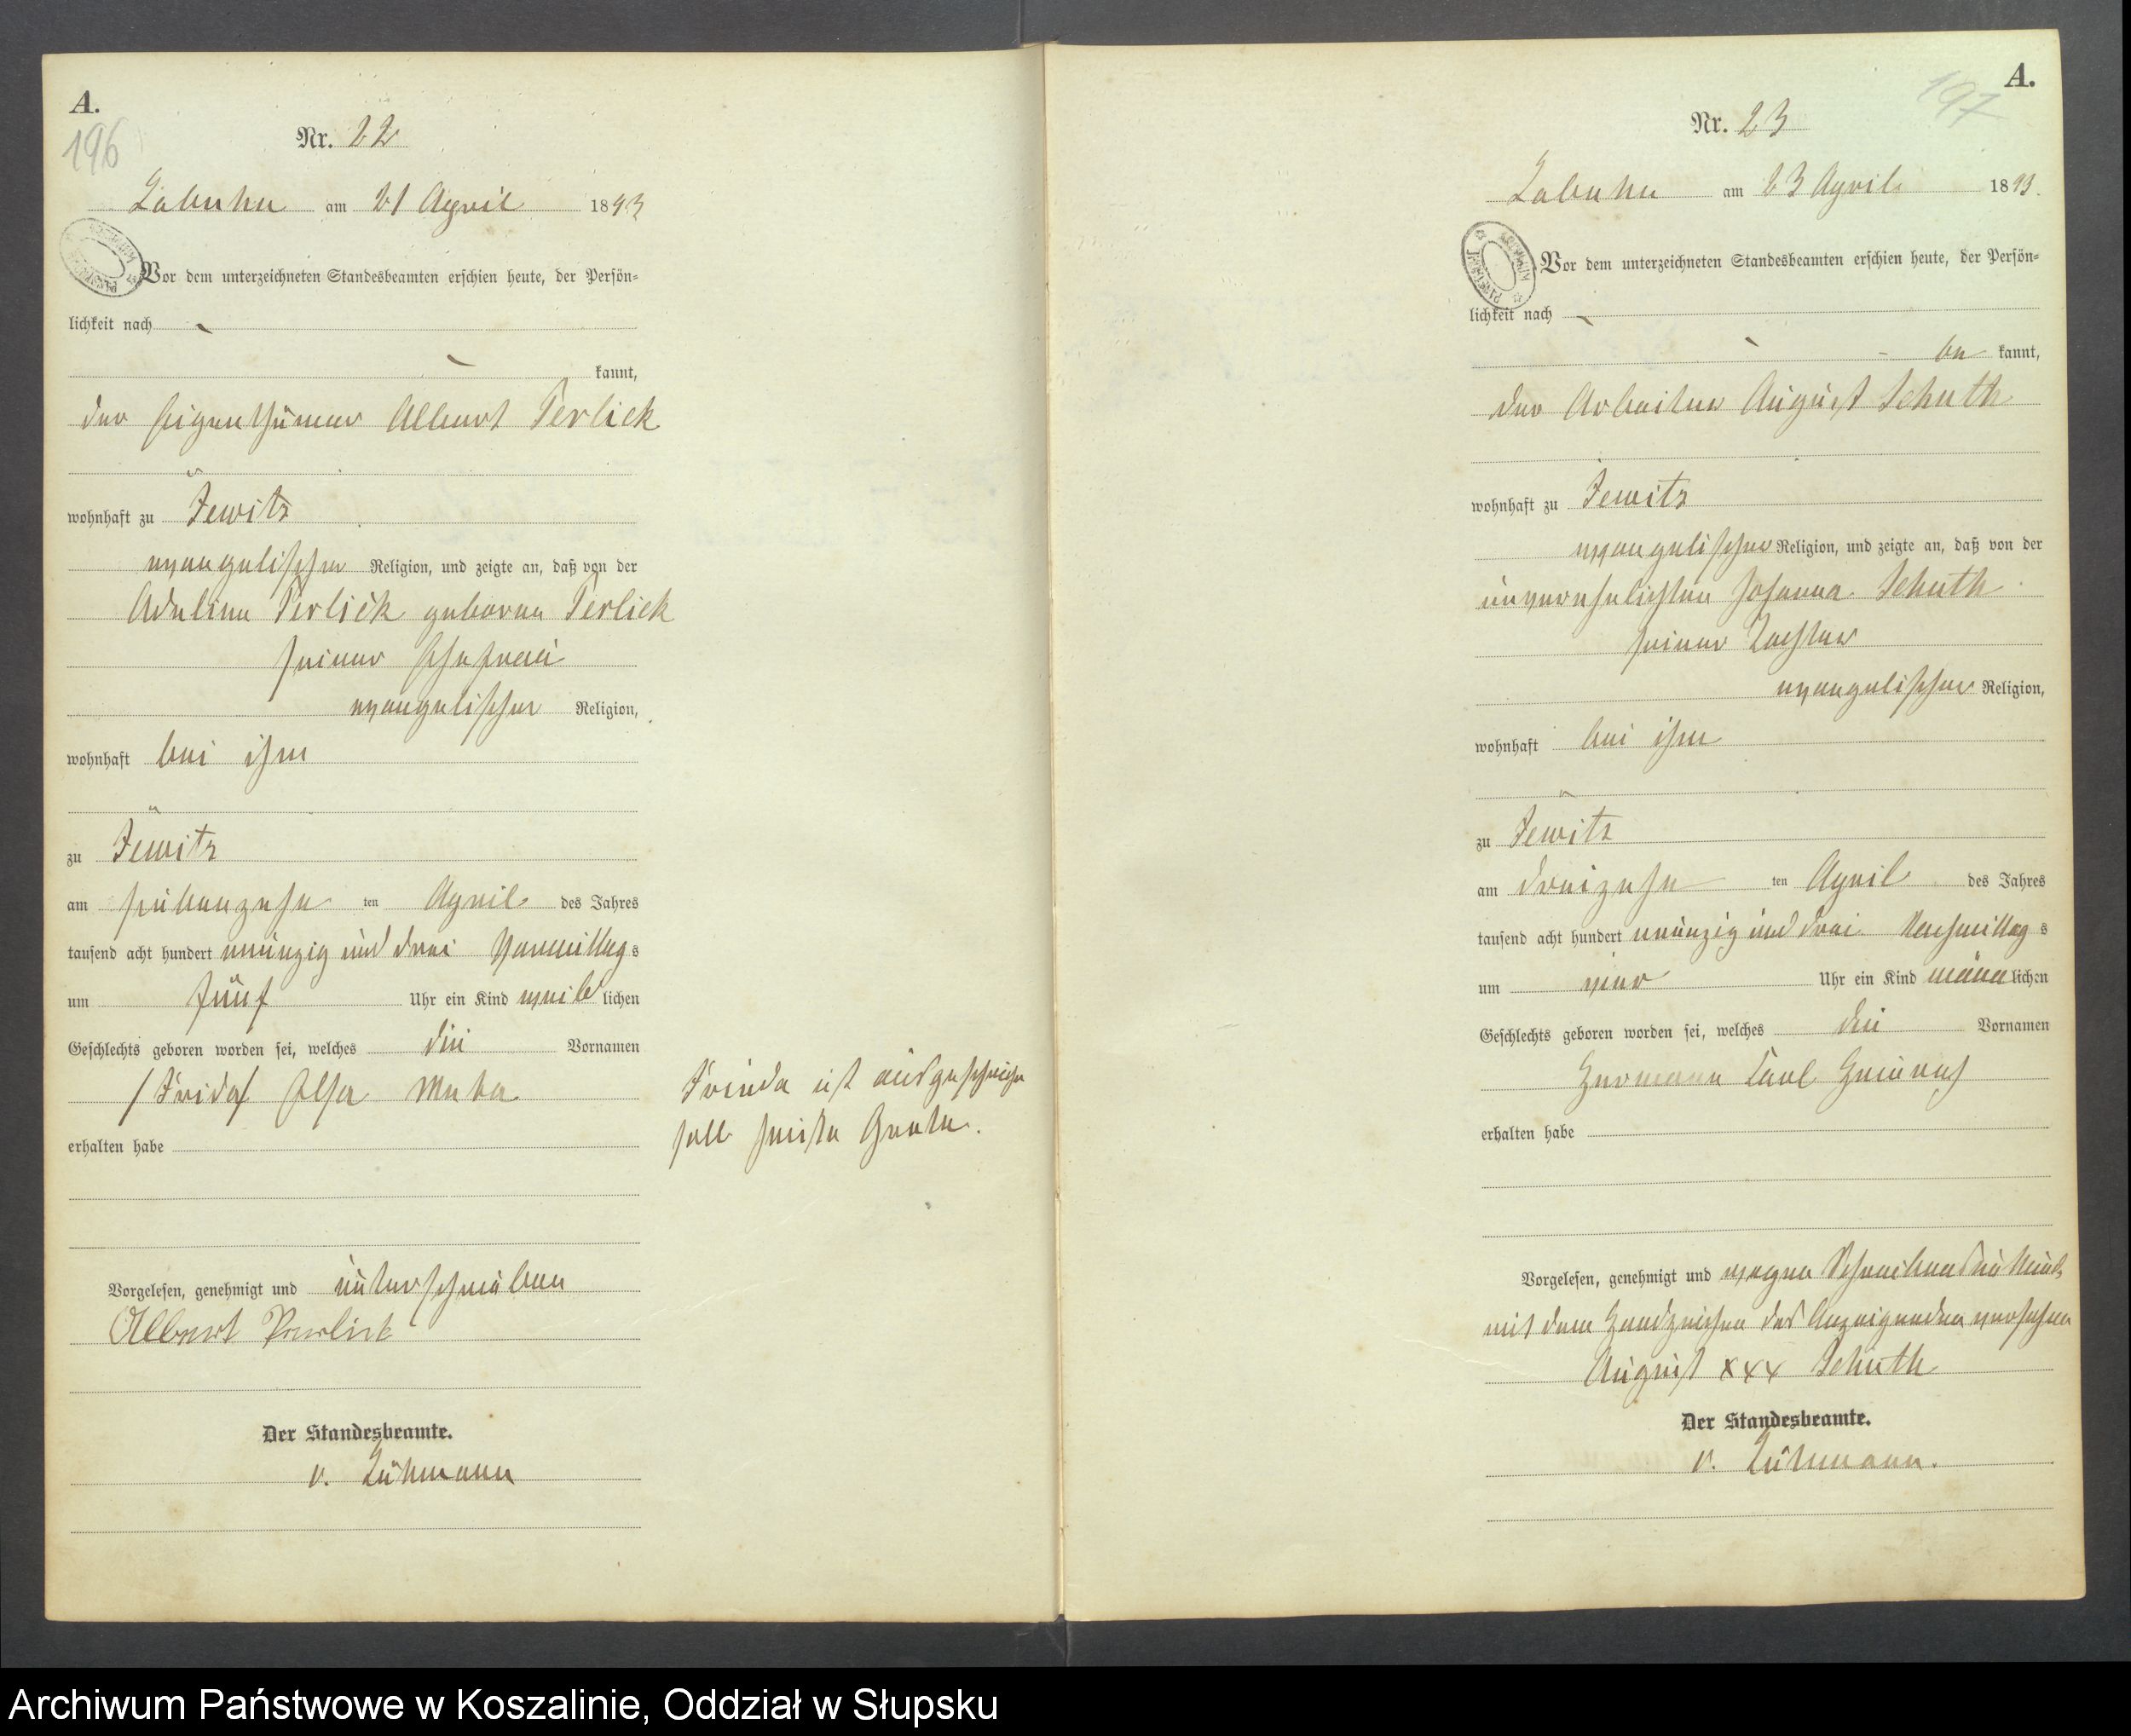 A.
196
Nr. 22
Labuhn am 21 April 1893
Vor dem unterzeichneten Standesbeamten erschien heute, der Persön=
lichkeit nach
kannt,
der Eigenthümer Albert Perlick
wohnhaft zu Jewitz
evangelischer Religion, und zeigte an, daß von der
Adeline Perlick geborne Perlick
seiner Ehefrau
evangelischer Religion,
wohnhaft bei ihm
zu Jewitz
am siebenzehn ten April des Jahres
tausend acht hundert neunzig und drei Vormittags
um fünf Uhr ein Kind weiblichen
Geschlechts geboren worden sei, welches die Vornamen
/Frida/ Elsa Meta
erhalten habe
Vorgelesen, genehmigt und unterschrieben
Albert Perlick
Der Standesbeamte.
v. Lühmann
Frieda ist ausgestrichen
soll heißen
A.
197
Nr. 23
Labuhn am 23 April 1893.
Vor dem unterzeichneten Standesbeamten erschien heute, der Persön=
lichkeit nach
be kannt,
der Arbeiter August Schuth
wohnhaft zu Jewitz
evangelischer Religion, und zeigte an, daß von der
unverehelichten Johanna Schuth
seiner Tochter
evangelischer Religion,
wohnhaft bei ihm
zu Jewitz
am dreizehn ten April des Jahres
tausend acht hundert neunzig und drei Nachmittags
um vier Uhr ein Kind männlichen
Geschlechts geboren worden sei, welches die Vornamen
Hermann Carl Heinrich
erhalten habe
Vorgelesen, genehmigt und wegen Schreibens
mit dem Handzeichen des Anzeigenden versehen
August xxx Schuth
Der Standesbeamte.
v. Lühmann.
Archiwum Państwowe w Koszalinie, Oddział w Słupsku